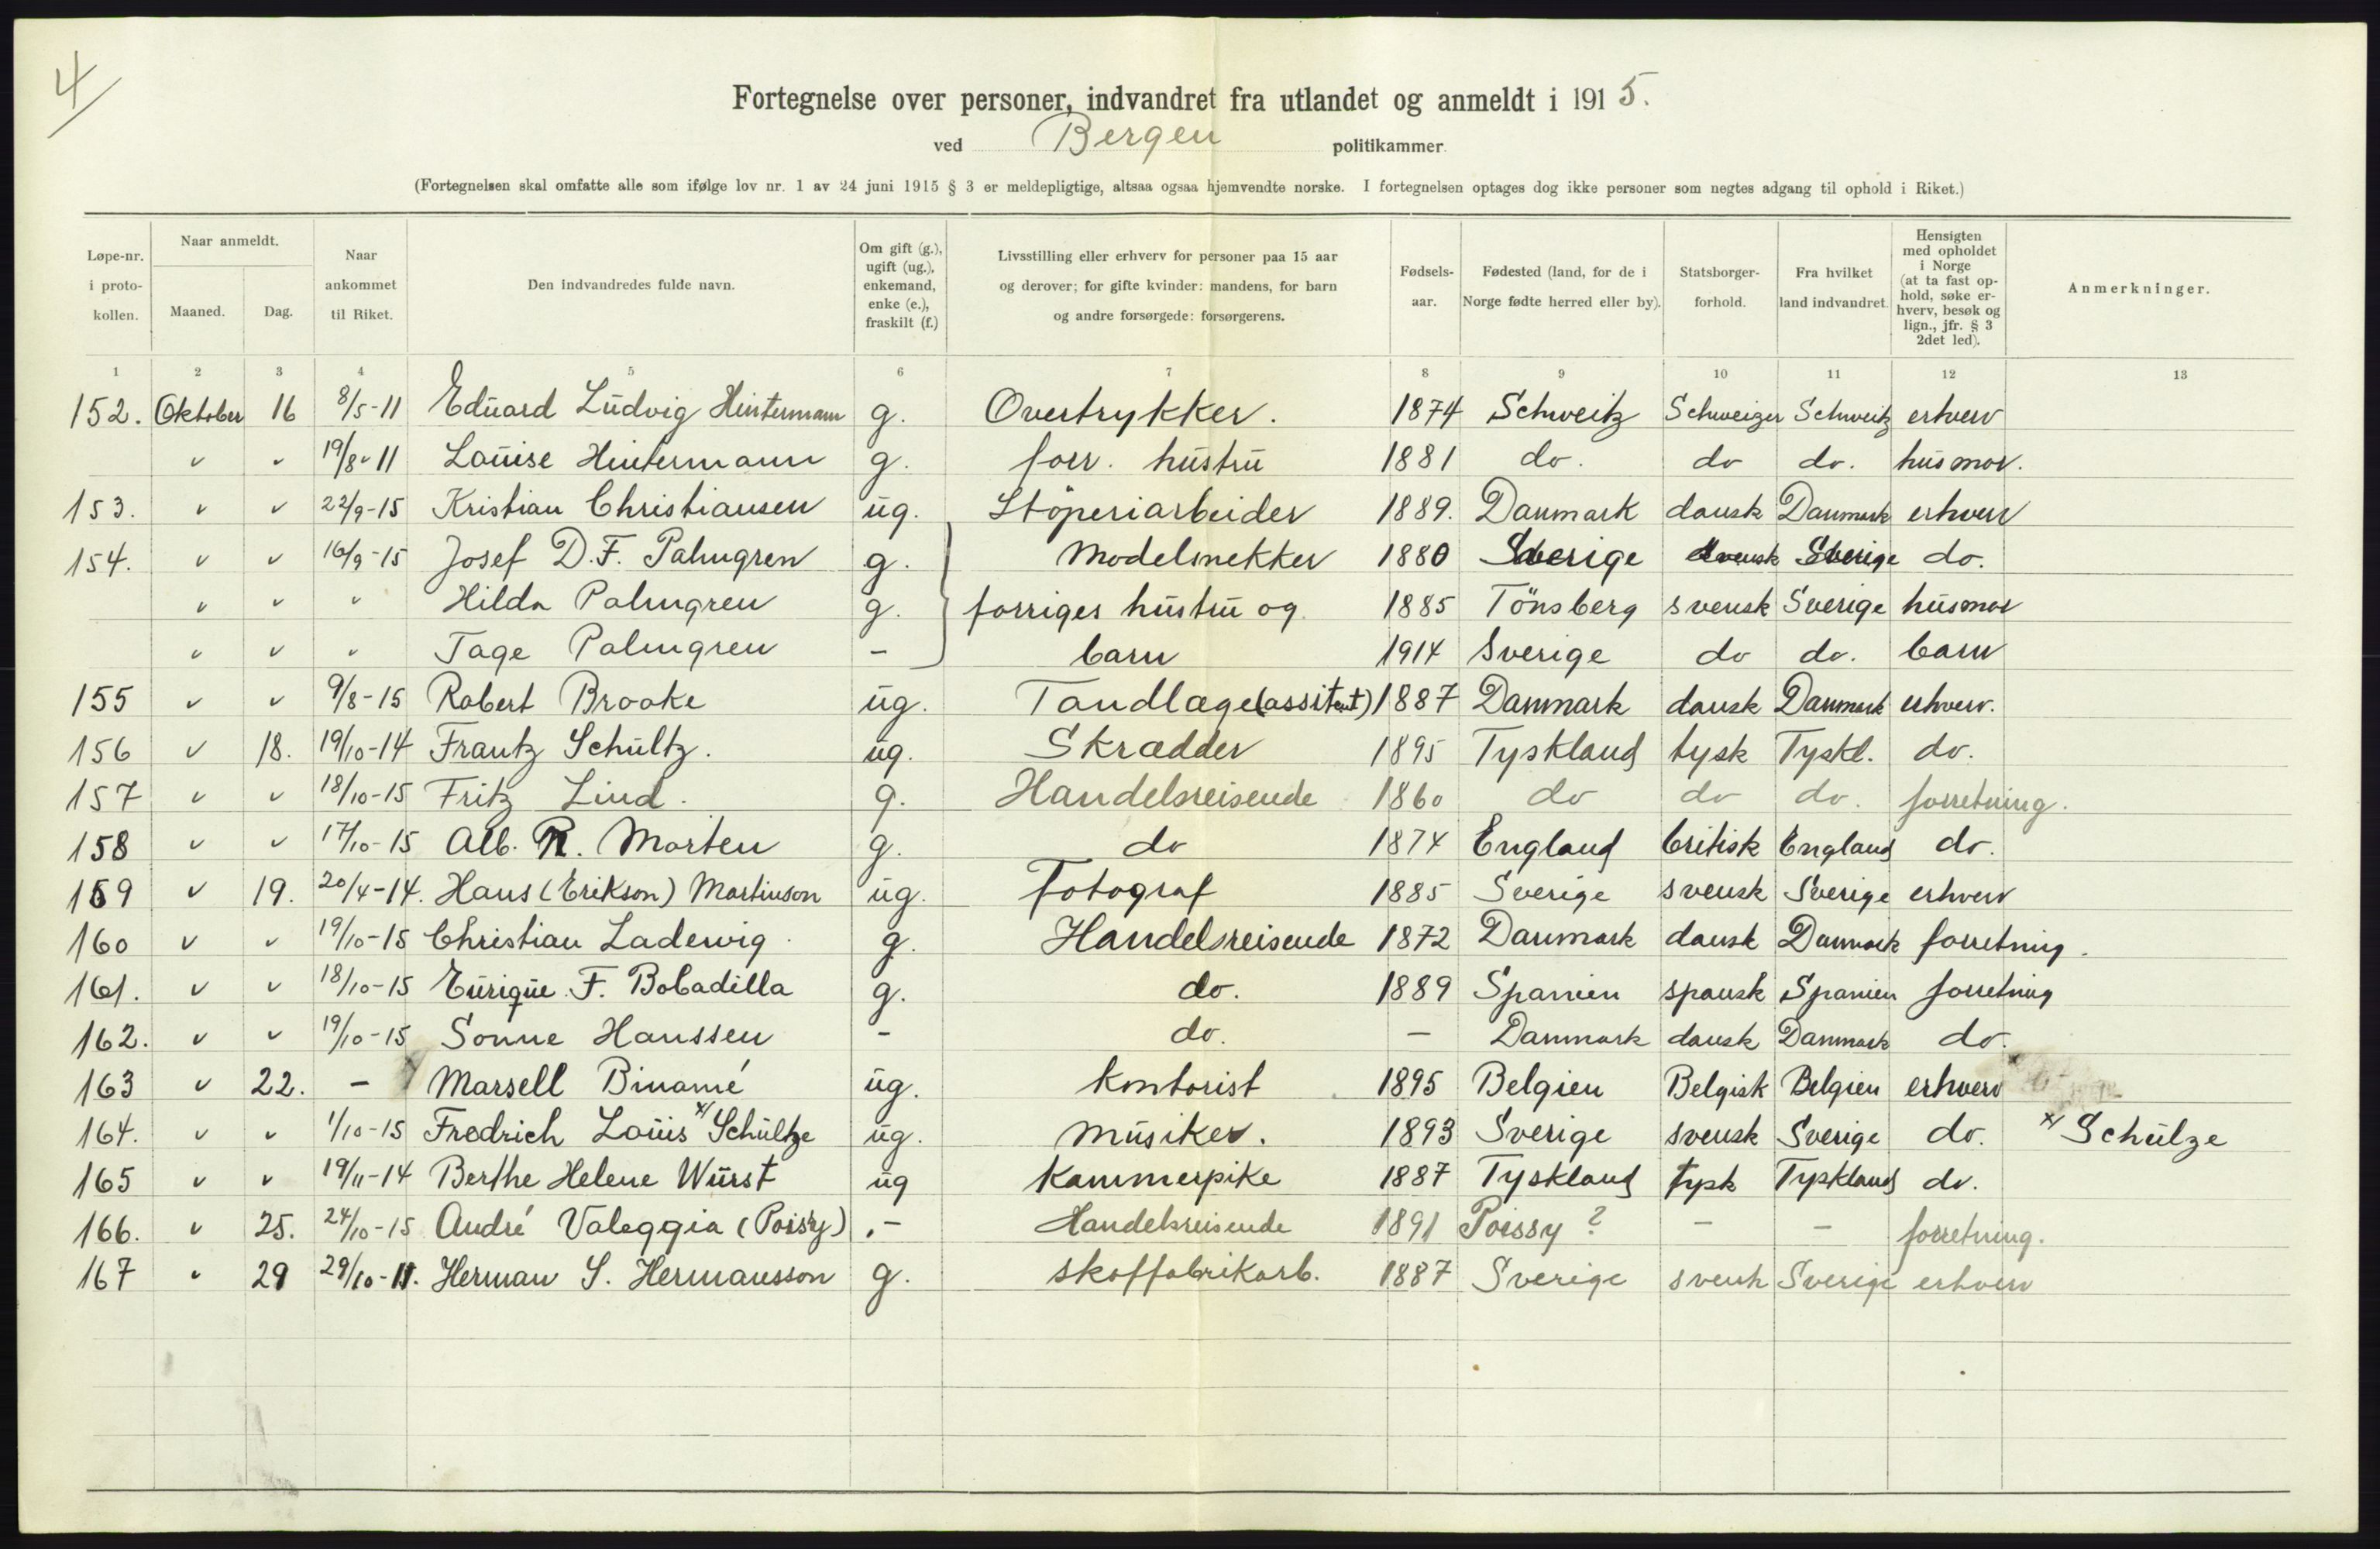 4/
Fortegnelse over personer, indvandret fra utlandet og anmeldt i 1915.
ved Bergen politikammer.
(Fortegnelsen skal omfatte alle som ifølge lov nr. 1 av 24 juni 1915 § 3 er meldepligtige, altsaa ogsaa hjemvendte norske. I fortegnelsen optages dog ikke personer som negtes adgang til ophold i Riket.)
Løpe-nr. i proto-kollen. Naar anmeldt. Maaned. Dag. Naar ankommet til Riket. Den indvandredes fulde navn. Om gift (g.), ugift (ug.), enkemand, enke (e.), fraskilt (f.) Livsstilling eller erhverv for personer paa 15 aar og derover; for gifte kvinder: mandens, for barn og andre forsørgede: forsørgerens. Fødsels-aar. Fødested (land, for de i Norge fødte herred eller by). Statsborger-forhold. Fra hvilket land indvandret. Hensigten med opholdet i Norge (at ta fast op-hold, søke er-hverv, besøk og lign., jfr. § 3 2det led). Anmerkninger.
1 2 3 4 5 6 7 8 9 10 11 12 13
152. Oktober 16 8/5-11 Eduard Ludvig Hintermann g. Overtrykker. 1874 Schweitz Schweizer Schweitz erhverv
" " 19/8-11 Louise Hintermann g. forr. hustru 1881 do. do do. husmor.
153. " " 22/9-15 Kristian Christiansen ug. Støperiarbeider 1889. Danmark dansk Danmark erhverv
154. " " 16/9-15 Josef D.F. Palmgren g. Modelsnekker 1880 Sverige svensk Sverige do.
" " " Hilda Palmgren g. forriges hustru og 1885 Tönsberg svensk Sverige husmor
" " " Tage Palmgren - barn 1914 Sverige do do. barn
155 " " 9/8-15 Robert Brooke ug. Tandlæge(assitent) 1887 Danmark dansk Danmark erhverv.
156 " 18. 19/10-14 Frantz Schultz. ug. Skrædder 1895 Tyskland tysk Tyskl. do.
157 " " 18/10-15 Fritz Lind. g. Handelsreisende 1860 do do do. forretning.
158 " " 17/10-15 Alb. R. Morten g. do 1874 England britisk England do.
159 " 19. 20/4-14. Hans (Erikson) Martinson ug. Fotograf 1885 Sverige svensk Sverige erhverv
160 " " 19/10-15 Christian Ladewig. g. Handelsreisende 1872 Danmark dansk Danmark forretning.
161. " " 18/10-15 Eurique F. Bobadilla g. do. 1889 Spanien spansk Spanien forretning
162. " " 19/10-15 Sonne Hanssen - do. - Danmark dansk Danmark do.
163 " 22. - Marsell Binamé ug. Kontorist 1895 Belgien Belgisk Belgien erhverv
164. " " 1/10-15 Fredrich Louis x/ Schultze ug. Musiker. 1893 Sverige svensk Sverige do. x/ Schulze
165 " " 19/11-14 Berthe Helene Wurst ug Kammerpike 1887 Tyskland tysk Tyskland do.
166. " 25. 24/10-15 André Valeggia (Poissy) .- Handelsreisende 1891 Poissy? - - forretning.
167 " 29 29/10-11. Herman S. Hermansson g. skoffabrikarb. 1887 Sverige svensk Sverige erhverv